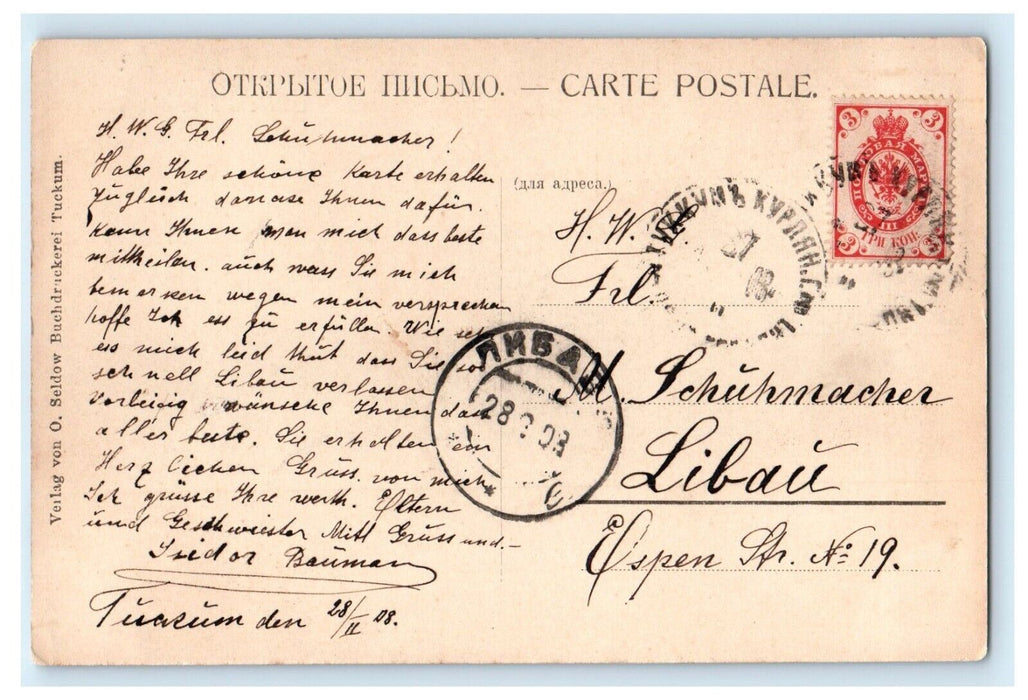 ОТКРЫТОЕ ПИСЬМО. — CARTE POSTALE.
H. W. G. Frl. Schuhmacher!
Habe Ihre schöne Karte erhalten
zugleich Ihnen dafür.
kann Ihnen von mich dass beste
mittheilen. auch wass Sie mich
bemerken wegen mein versprechen
hoffe Ich ess zu erfüllen. Wie
es mich leid thut dass Sie so
schnell Libau verlassen
vorleifig wünsche Ihnen das
aller beste. Sie erhalten ein
Herzlichen Gruss. von mich
Ich grüsse Ihre werth. Eltern
und Geschwiester Mitt Gruss und.-
Isidor Bauman
Tuckum den 28/II 08.
Verlag von O. Seldow Buchdruckerei Tuckum.
(для адреса.)
H. W. G.
Frl.
M. Schuhmacher
Libau
Espen Str. № 19.
3 3
ПОЧТОВАЯ МАРКА
III
ТРИ КОП.
3 3
ТУККУМЪ КУРЛЯН. Г.
27
08
ЛИБАВА
28 2 08